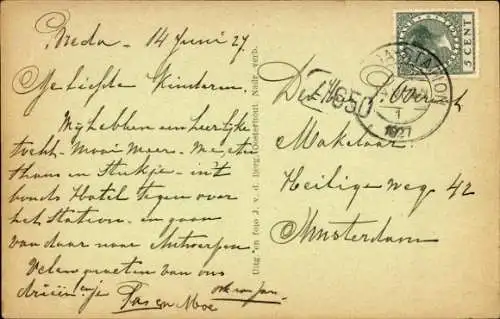 Breda 14 Juni 27
Geliefste Kinderen.
Wij hebben een heerlijke
tocht - Mooi weer - We
thans en Stukje - in't
bonds Hotel tegen over
het Station - en gaan
van daar naar Antwerpen
Vele groeten van ons
drieën! je Pas en Moe
ook van Jan.
Uitg. en foto J. v. d. Berg, Oosterhout. Nadr. verb.
5 CENT
STATION
1
1927
Den Heer
Makelaar
Heilige weg 42
Amsterdam